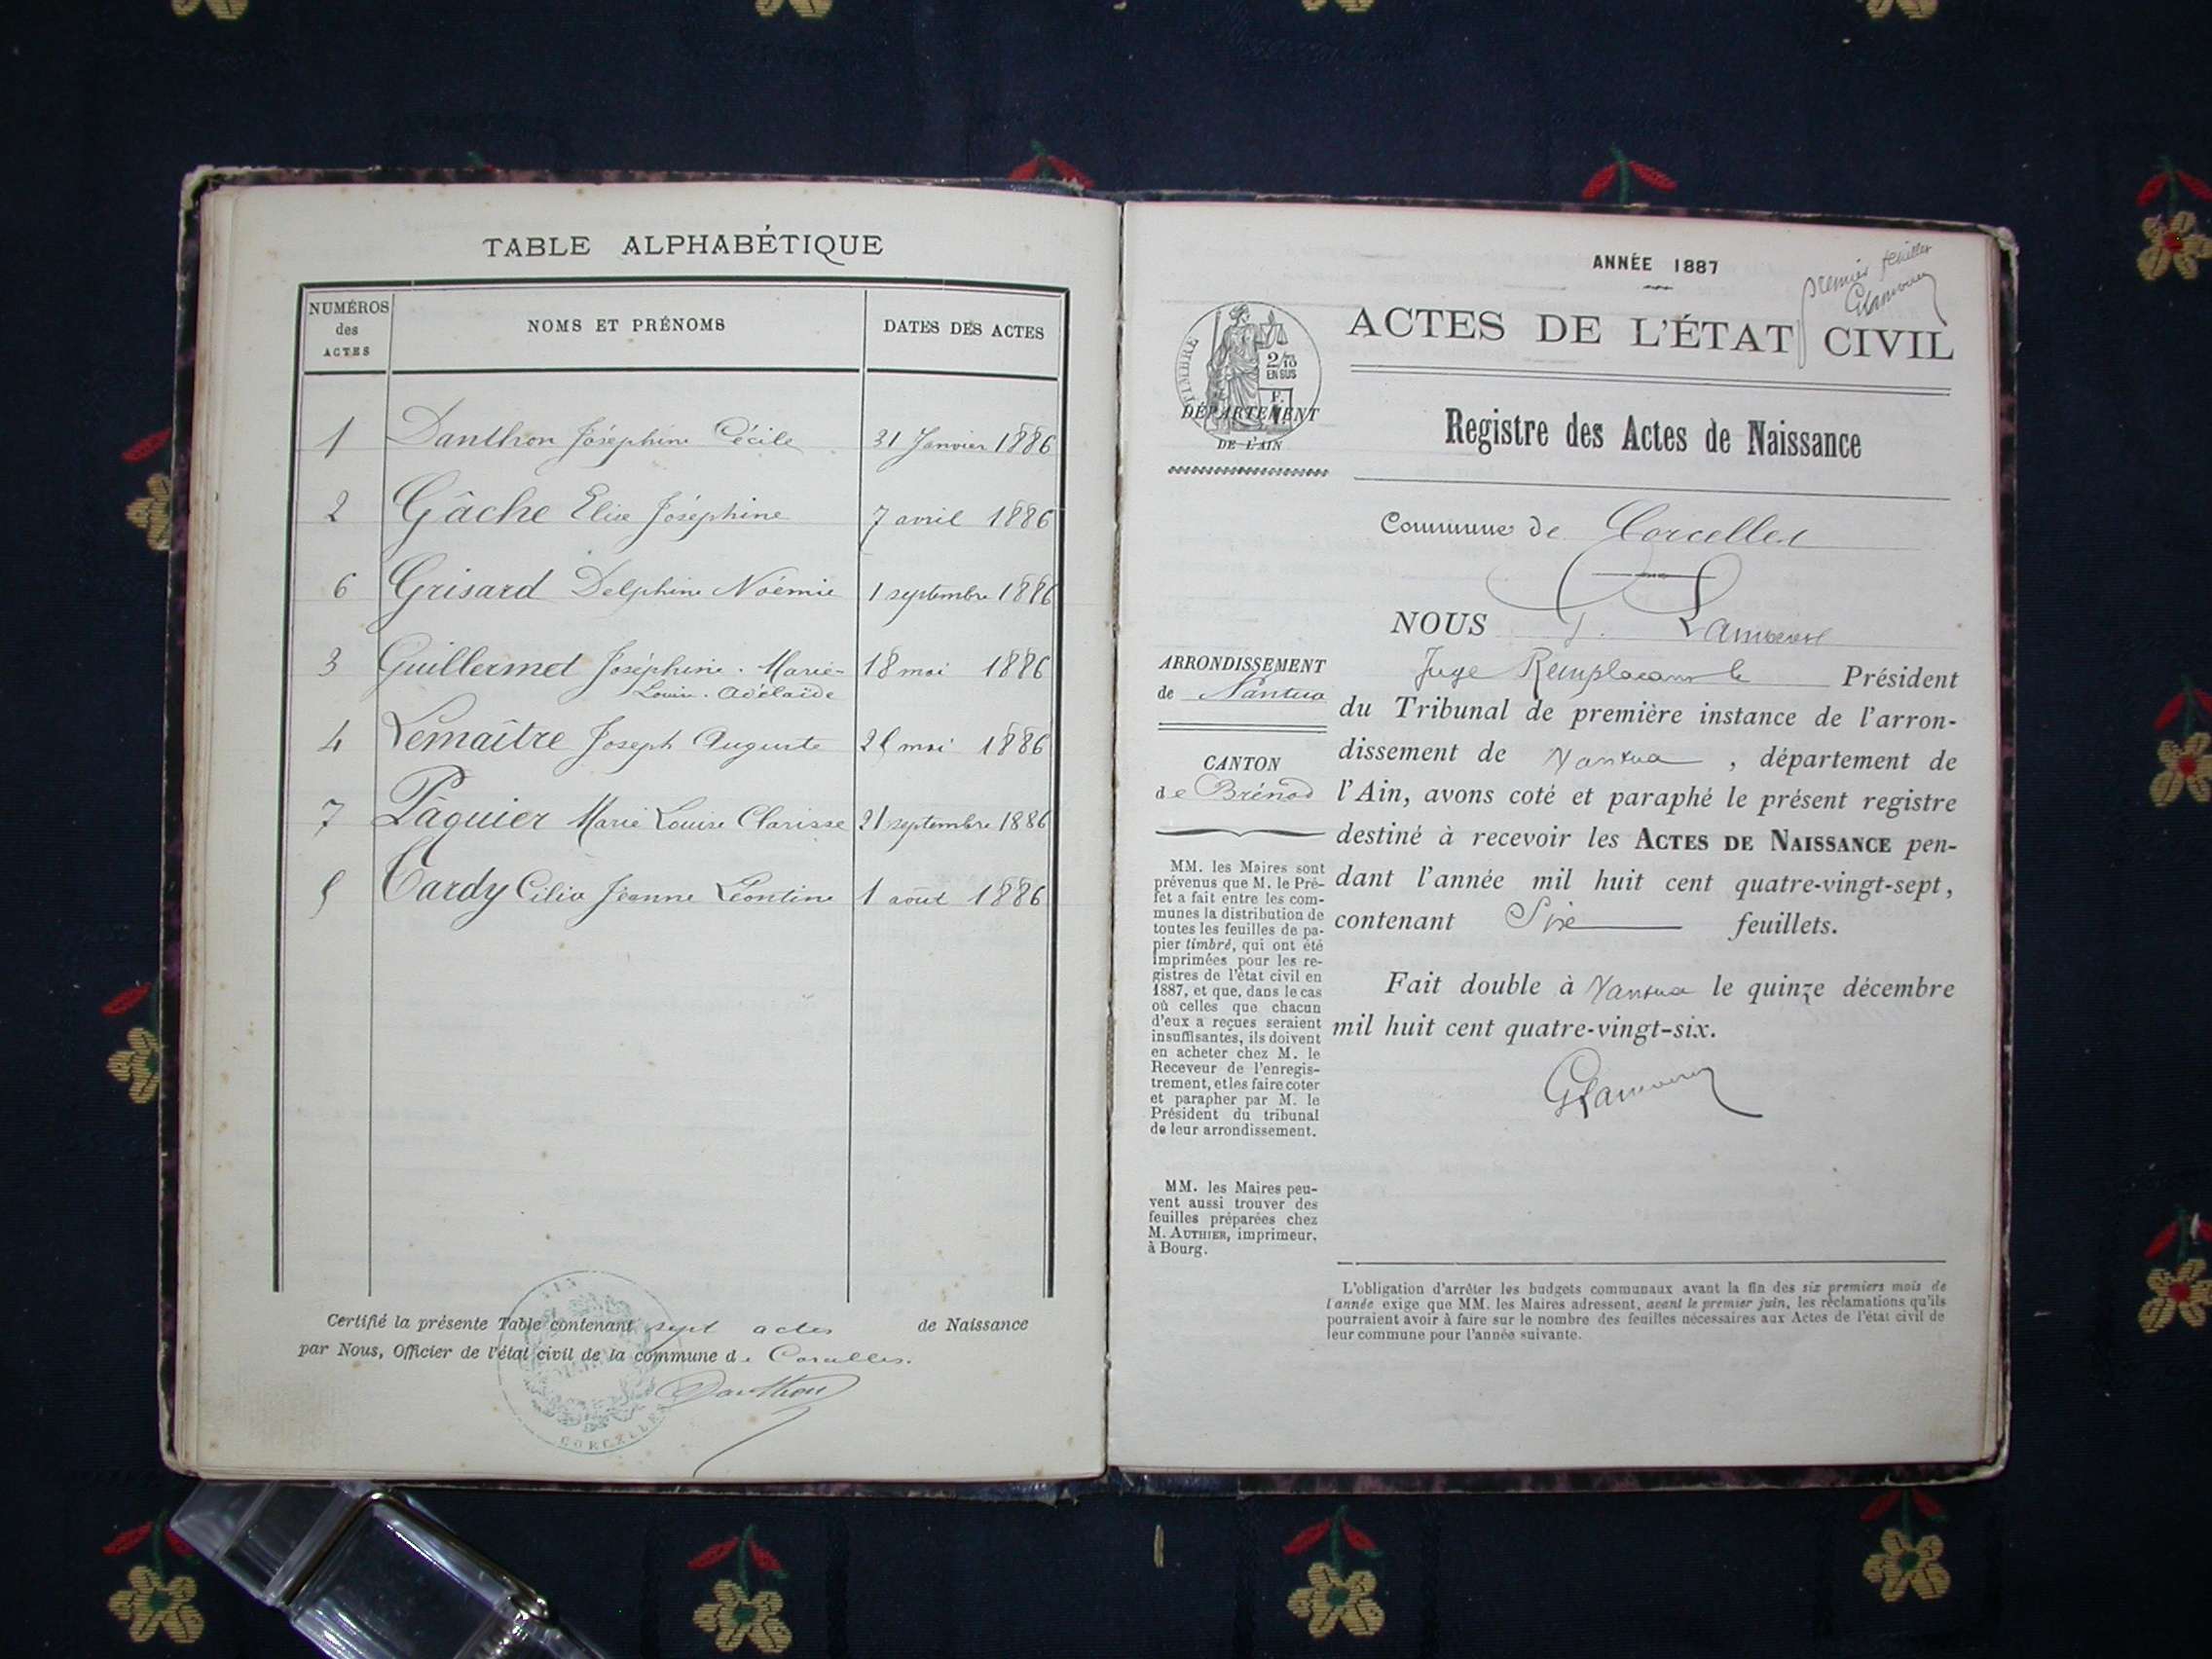 TABLE ALPHABÉTIQUE
NUMÉROS des ACTES NOMS ET PRÉNOMS DATES DES ACTES
1 Danthon Joséphine Cécile 31 Janvier 1886
2 Gâche Elise Joséphine 7 avril 1886
6 Grisard Delphine Noémie 1 septembre 1886
3 Guillermet Joséphine. Marie- 18 mai 1886
Louise. Adélaïde
4 Lemaître Joseph Auguste mai 1886
7 Pâquier Marie Louise Clarisse 21 septembre 1886
5 Tardy Jeanne Léontine 1 août 1886
Certifié la présente Table contenant sept actes de Naissance
par Nous, Officier de l'état civil de la commune de Corcelles.
Danthon
AIN
CORCELLES
ANNÉE 1887
premier feuillet
ACTES DE L'ÉTAT CIVIL
TIMBRE
2/10
EN SUS
DÉPARTEMENT
DE L'AIN
Registre des Actes de Naissance
Commune de Corcelles
NOUS
ARRONDISSEMENT
de Nantua
CANTON
de Brénod
MM. les Maires sont
prévenus que M. le Pré-
fet a fait entre les com-
munes la distribution de
toutes les feuilles de pa-
pier timbré, qui ont été
imprimées pour les re-
gistres de l'état civil en
1887, et que, dans le cas
où celles que chacun
d'eux a reçues seraient
insuffisantes, ils doivent
en acheter chez M. le
Receveur de l'enregis-
trement, et les faire coter
et parapher par M. le
Président du tribunal
de leur arrondissement.
MM. les Maires peu-
vent aussi trouver des
feuilles préparées chez
M. AUTHIER, imprimeur,
à Bourg.
Juge Remplaçant le Président
du Tribunal de première instance de l'arron-
dissement de Nantua, département de
l'Ain, avons coté et paraphé le présent registre
destiné à recevoir les ACTES DE NAISSANCE pen-
dant l'année mil huit cent quatre-vingt-sept,
contenant feuillets.
Fait double à Nantua le quinze décembre
mil huit cent quatre-vingt-six.
L'obligation d'arrêter les budgets communaux avant la fin des six premiers mois de
l'année exige que MM. les Maires adressent, avant le premier juin, les réclamations qu'ils
pourraient avoir à faire sur le nombre des feuilles nécessaires aux Actes de l'état civil de
leur commune pour l'année suivante.